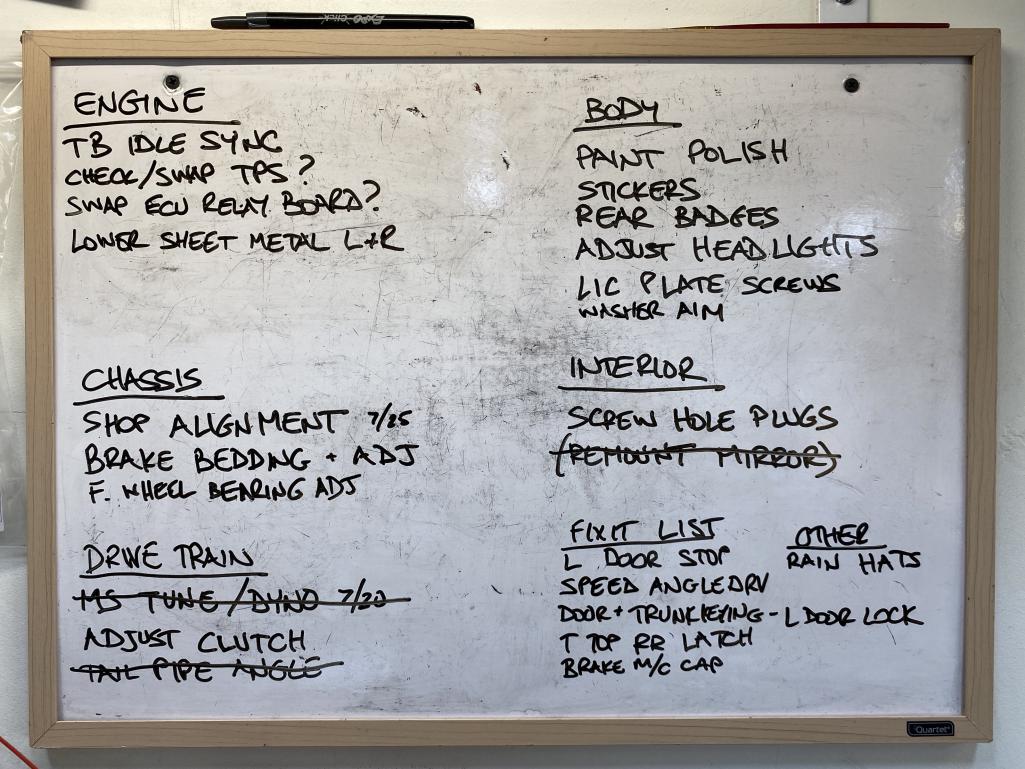 EXPO CLICK
ENGINE
TB IDLE SYNC
CHECK/SWAP TPS?
SWAP ECU RELAY BOARD?
LOWER SHEET METAL L+R
CHASSIS
SHOP ALIGNMENT 7/25
BRAKE BEDDING + ADJ
F. WHEEL BEARING ADJ
DRIVE TRAIN
MS TUNE/DYNO 7/20
ADJUST CLUTCH
TAIL PIPE ANGLE
BODY
PAINT POLISH
STICKERS
REAR BADGES
ADJUST HEADLIGHTS
LIC PLATE SCREWS
WASHER AIM
INTERIOR
SCREW HOLE PLUGS
(REMOUNT MIRROR)
FIXIT LIST
L DOOR STOP
SPEED ANGLEDRV
DOOR + TRUNK KEYING - L DOOR LOCK
T TOP RR LATCH
BRAKE M/C CAP
OTHER
RAIN HATS
Quartet